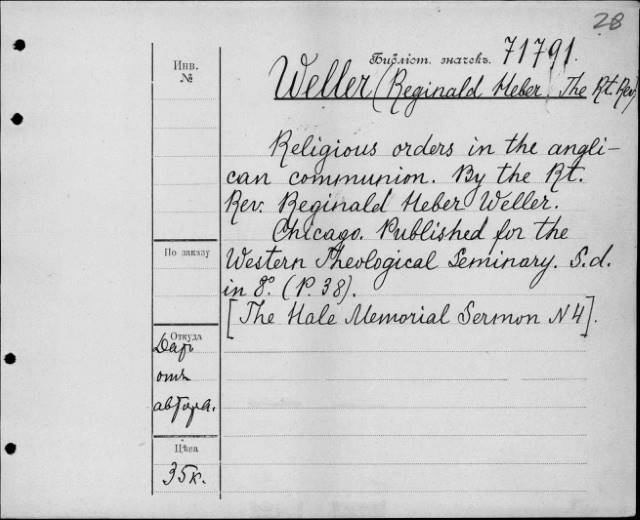 28
Инв.
№
Библіот. значекъ. 71791.
Weller (Reginald Heber) The Rt. Rev
Religious orders in the angli-
can communion. By the Rt.
Rev. Reginald Heber Weller.
Chicago. Published for the
Western Theological Seminary. S.d.
in 8º. (P. 38).
[The Hale Memorial Sermon N4].
По заказу
Откуда
Даръ
отъ
автора.
Цѣна
35к.